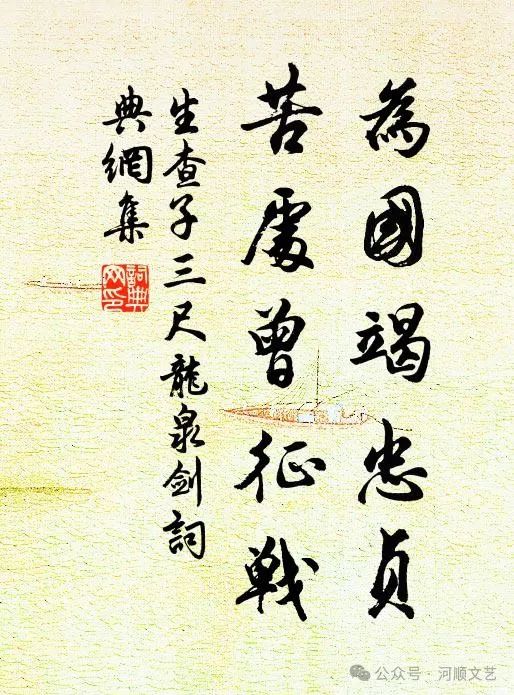 為國竭忠貞
苦處曾征戰
生查子三尺龍泉劍詞
典網集
詞典
网印
公众号 · 河顺文艺